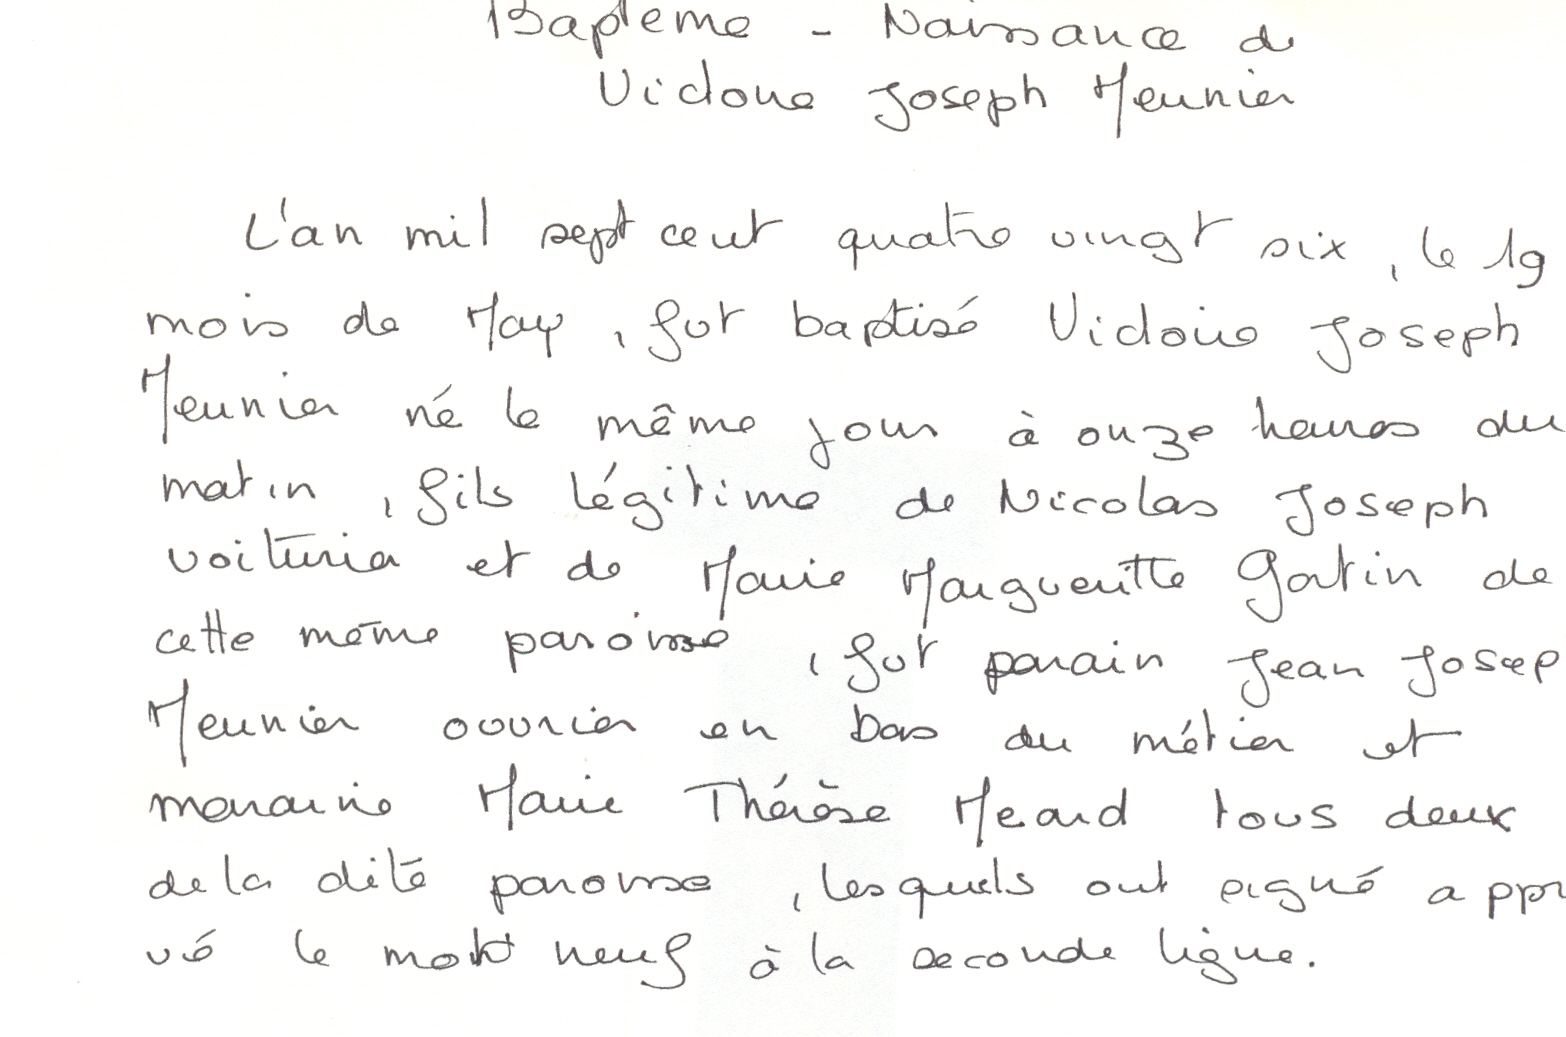 Baptême - Naissance de
Victoire Joseph Meunier
L'an mil sept cent quatre vingt six, le 19
mois de May, fut baptisé Victoire Joseph
Meunier né le même jour à onze heures du
matin, fils légitime de Nicolas Joseph
voiturier et de Marie Margueritte Gatin de
cette même paroisse, fut parain Jean Josep
Meunier ouvrier en bas du métier et
maraine Marie Thérèse Meard tous deux
de la dite paroisse, lesquels ont signé appr
vé le mot neuf à la seconde ligne.